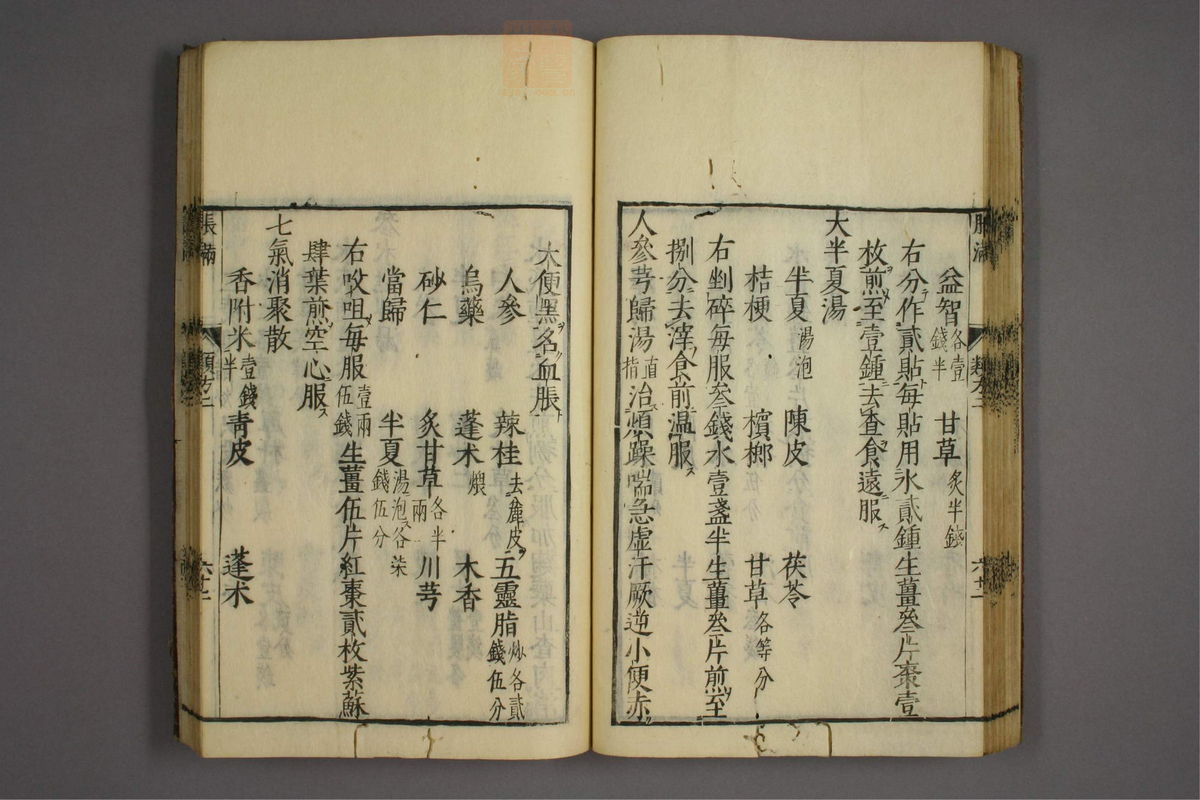 脹滿 類方二 六廿二
益智各壹錢半 甘草炙半錢
右分作貳貼每貼用水貳鍾生薑叄片棗壹
枚煎至壹鍾去查食遠服
大半夏湯
半夏湯泡 陳皮 茯苓
桔梗 檳榔 甘草各等分
右剉碎每服叄錢水壹盞半生薑叄片煎至
捌分去滓食前温服
人參芎歸湯直指治煩躁喘急虛汗厥逆小便赤
大便黑名血脹
人參 辣桂去麄皮 五靈脂炒各貳錢伍分
烏藥 蓬术煨 木香
砂仁 炙甘草各半兩 川芎
當歸 半夏湯泡各柒錢伍分
右㕮咀每服壹兩伍錢生薑伍片紅棗貳枚紫蘇
肆葉煎空心服
七氣消聚散
香附米壹錢半 靑皮 蓬术
脹滿 類方二 六廿二